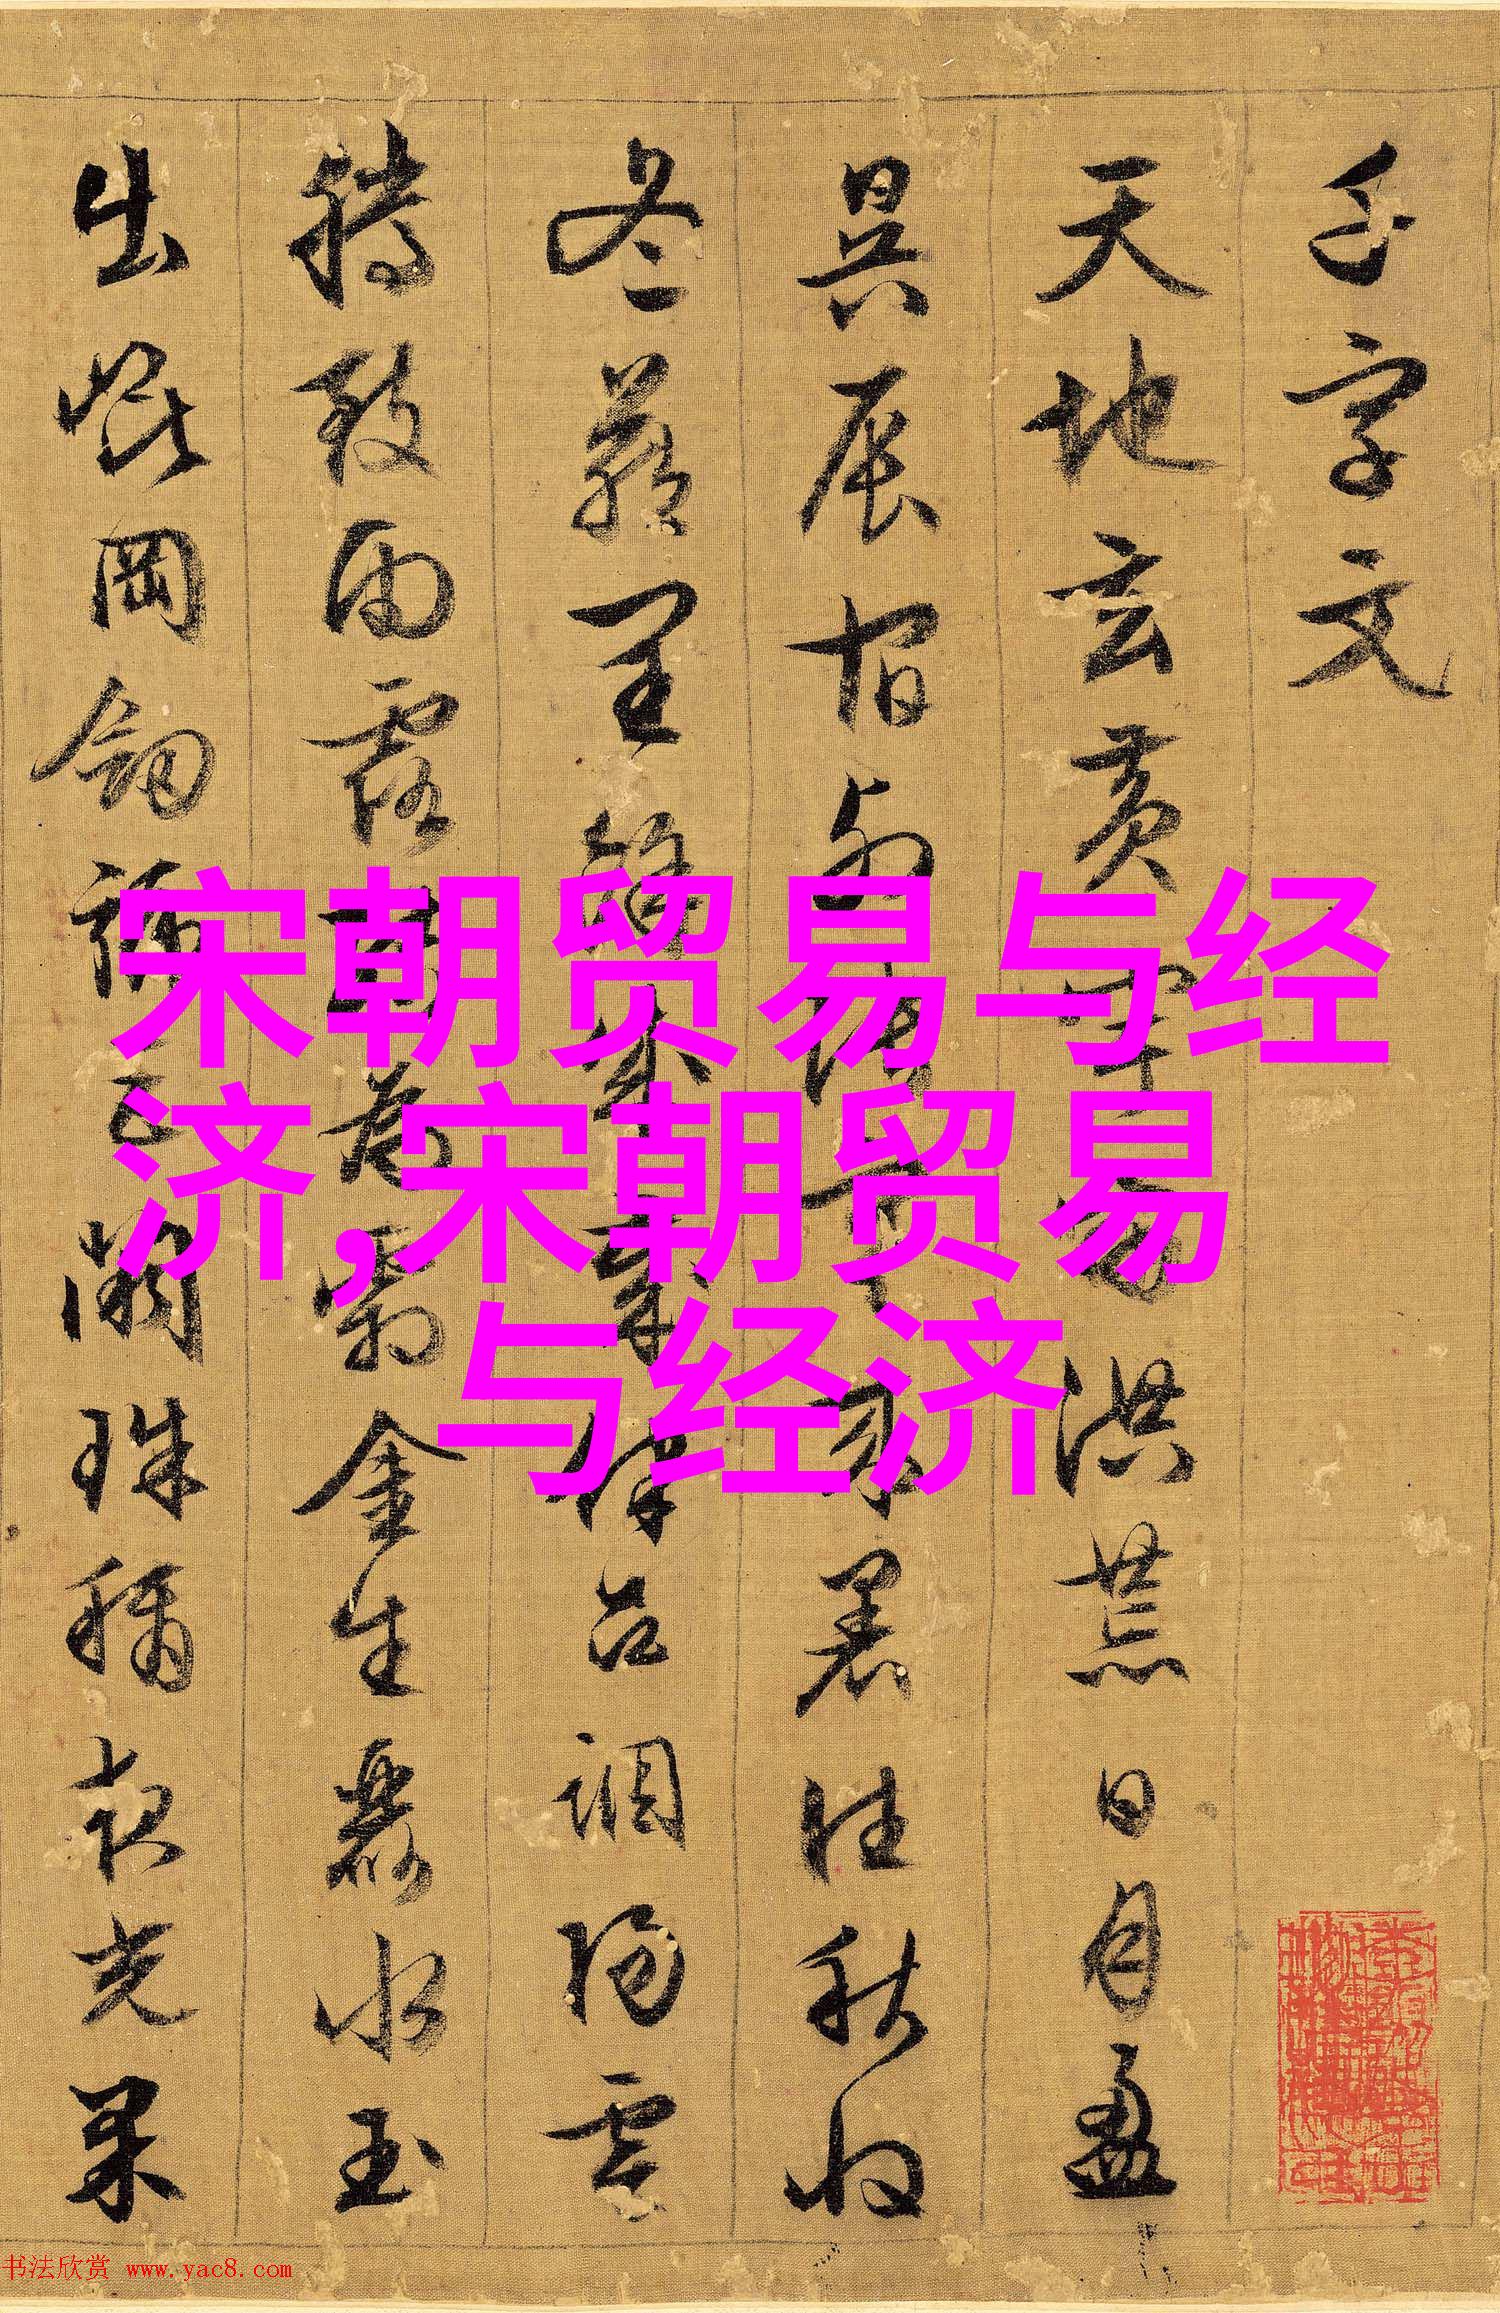 千字文
天地玄黄宇宙洪荒日月盈
昃辰宿列張寒来暑往秋收
冬藏閏餘成歲律吕調陽雲
騰致雨露結為霜金生麗水玉
出崐岡劍號巨闕珠稱夜光果
宋朝贸易与经
济,宋朝贸易
与经济
书法欣赏 www.yac8.com